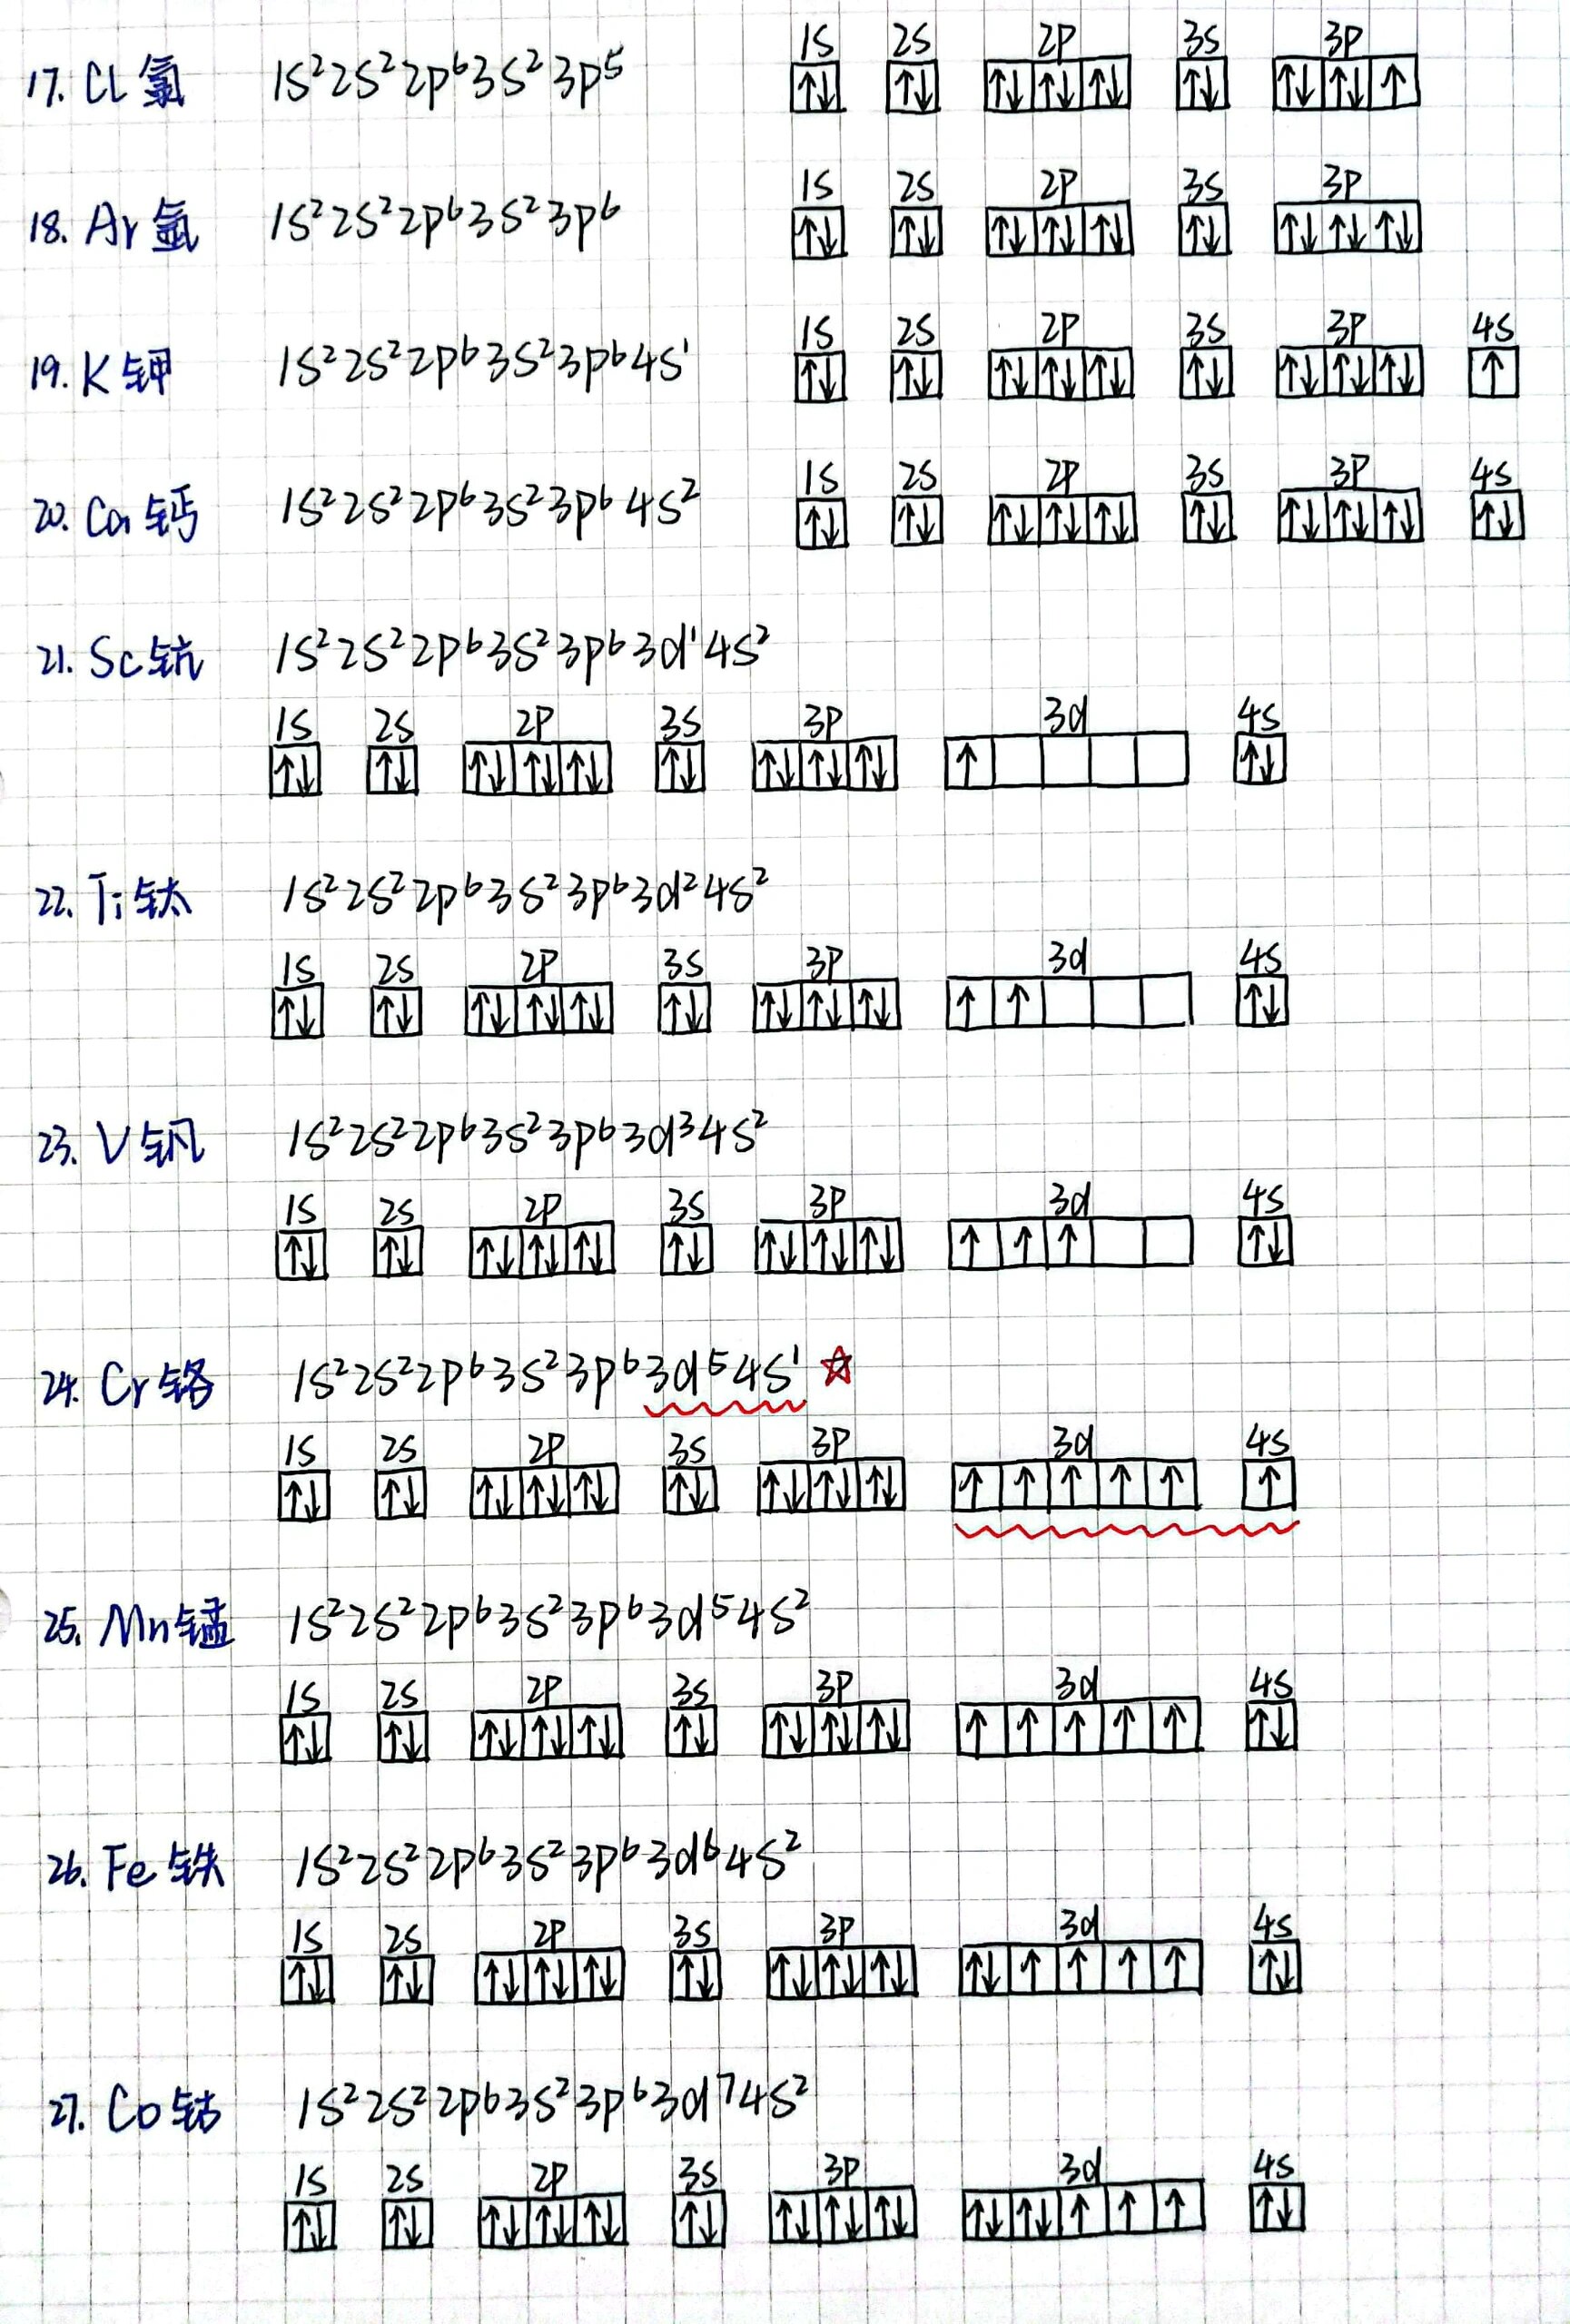 17. Cl 氯 1s²2s²2p⁶3s²3p⁵ 1s 2s 2p 3s 3p
↑↓ ↑↓ ↑↓ ↑↓ ↑↓ ↑↓ ↑↓ ↑↓ ↑
18. Ar 氩 1s²2s²2p⁶3s²3p⁶ 1s 2s 2p 3s 3p
↑↓ ↑↓ ↑↓ ↑↓ ↑↓ ↑↓ ↑↓ ↑↓ ↑↓
19. K 钾 1s²2s²2p⁶3s²3p⁶4s¹ 1s 2s 2p 3s 3p 4s
↑↓ ↑↓ ↑↓ ↑↓ ↑↓ ↑↓ ↑↓ ↑↓ ↑↓ ↑
20. Ca 钙 1s²2s²2p⁶3s²3p⁶4s² 1s 2s 2p 3s 3p 4s
↑↓ ↑↓ ↑↓ ↑↓ ↑↓ ↑↓ ↑↓ ↑↓ ↑↓ ↑↓
21. Sc 钪 1s²2s²2p⁶3s²3p⁶3d¹4s²
1s 2s 2p 3s 3p 3d 4s
↑↓ ↑↓ ↑↓ ↑↓ ↑↓ ↑↓ ↑↓ ↑↓ ↑↓ ↑ ↑↓
22. Ti 钛 1s²2s²2p⁶3s²3p⁶3d²4s²
1s 2s 2p 3s 3p 3d 4s
↑↓ ↑↓ ↑↓ ↑↓ ↑↓ ↑↓ ↑↓ ↑↓ ↑↓ ↑ ↑ ↑↓
23. V 钒 1s²2s²2p⁶3s²3p⁶3d³4s²
1s 2s 2p 3s 3p 3d 4s
↑↓ ↑↓ ↑↓ ↑↓ ↑↓ ↑↓ ↑↓ ↑↓ ↑↓ ↑ ↑ ↑ ↑↓
24. Cr 铬 1s²2s²2p⁶3s²3p⁶3d⁵4s¹ ☆
1s 2s 2p 3s 3p 3d 4s
↑↓ ↑↓ ↑↓ ↑↓ ↑↓ ↑↓ ↑↓ ↑↓ ↑↓ ↑ ↑ ↑ ↑ ↑ ↑
25. Mn 锰 1s²2s²2p⁶3s²3p⁶3d⁵4s²
1s 2s 2p 3s 3p 3d 4s
↑↓ ↑↓ ↑↓ ↑↓ ↑↓ ↑↓ ↑↓ ↑↓ ↑↓ ↑ ↑ ↑ ↑ ↑ ↑↓
26. Fe 铁 1s²2s²2p⁶3s²3p⁶3d⁶4s²
1s 2s 2p 3s 3p 3d 4s
↑↓ ↑↓ ↑↓ ↑↓ ↑↓ ↑↓ ↑↓ ↑↓ ↑↓ ↑↓ ↑ ↑ ↑ ↑ ↑↓
27. Co 钴 1s²2s²2p⁶3s²3p⁶3d⁷4s²
1s 2s 2p 3s 3p 3d 4s
↑↓ ↑↓ ↑↓ ↑↓ ↑↓ ↑↓ ↑↓ ↑↓ ↑↓ ↑↓ ↑↓ ↑ ↑ ↑ ↑↓